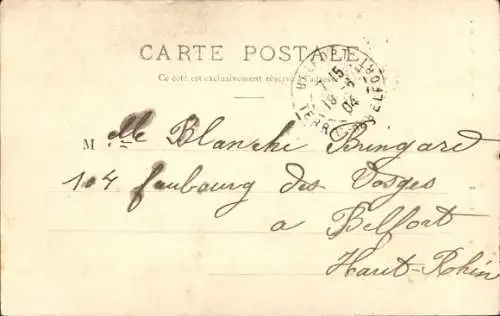 CARTE POSTALE
Ce côté est exclusivement réservé à l'adresse
7-15
19
04
BELFORT
Mlle Blanche Bringard
104 faubourg des Vosges
a Belfort
Haut-Rhin